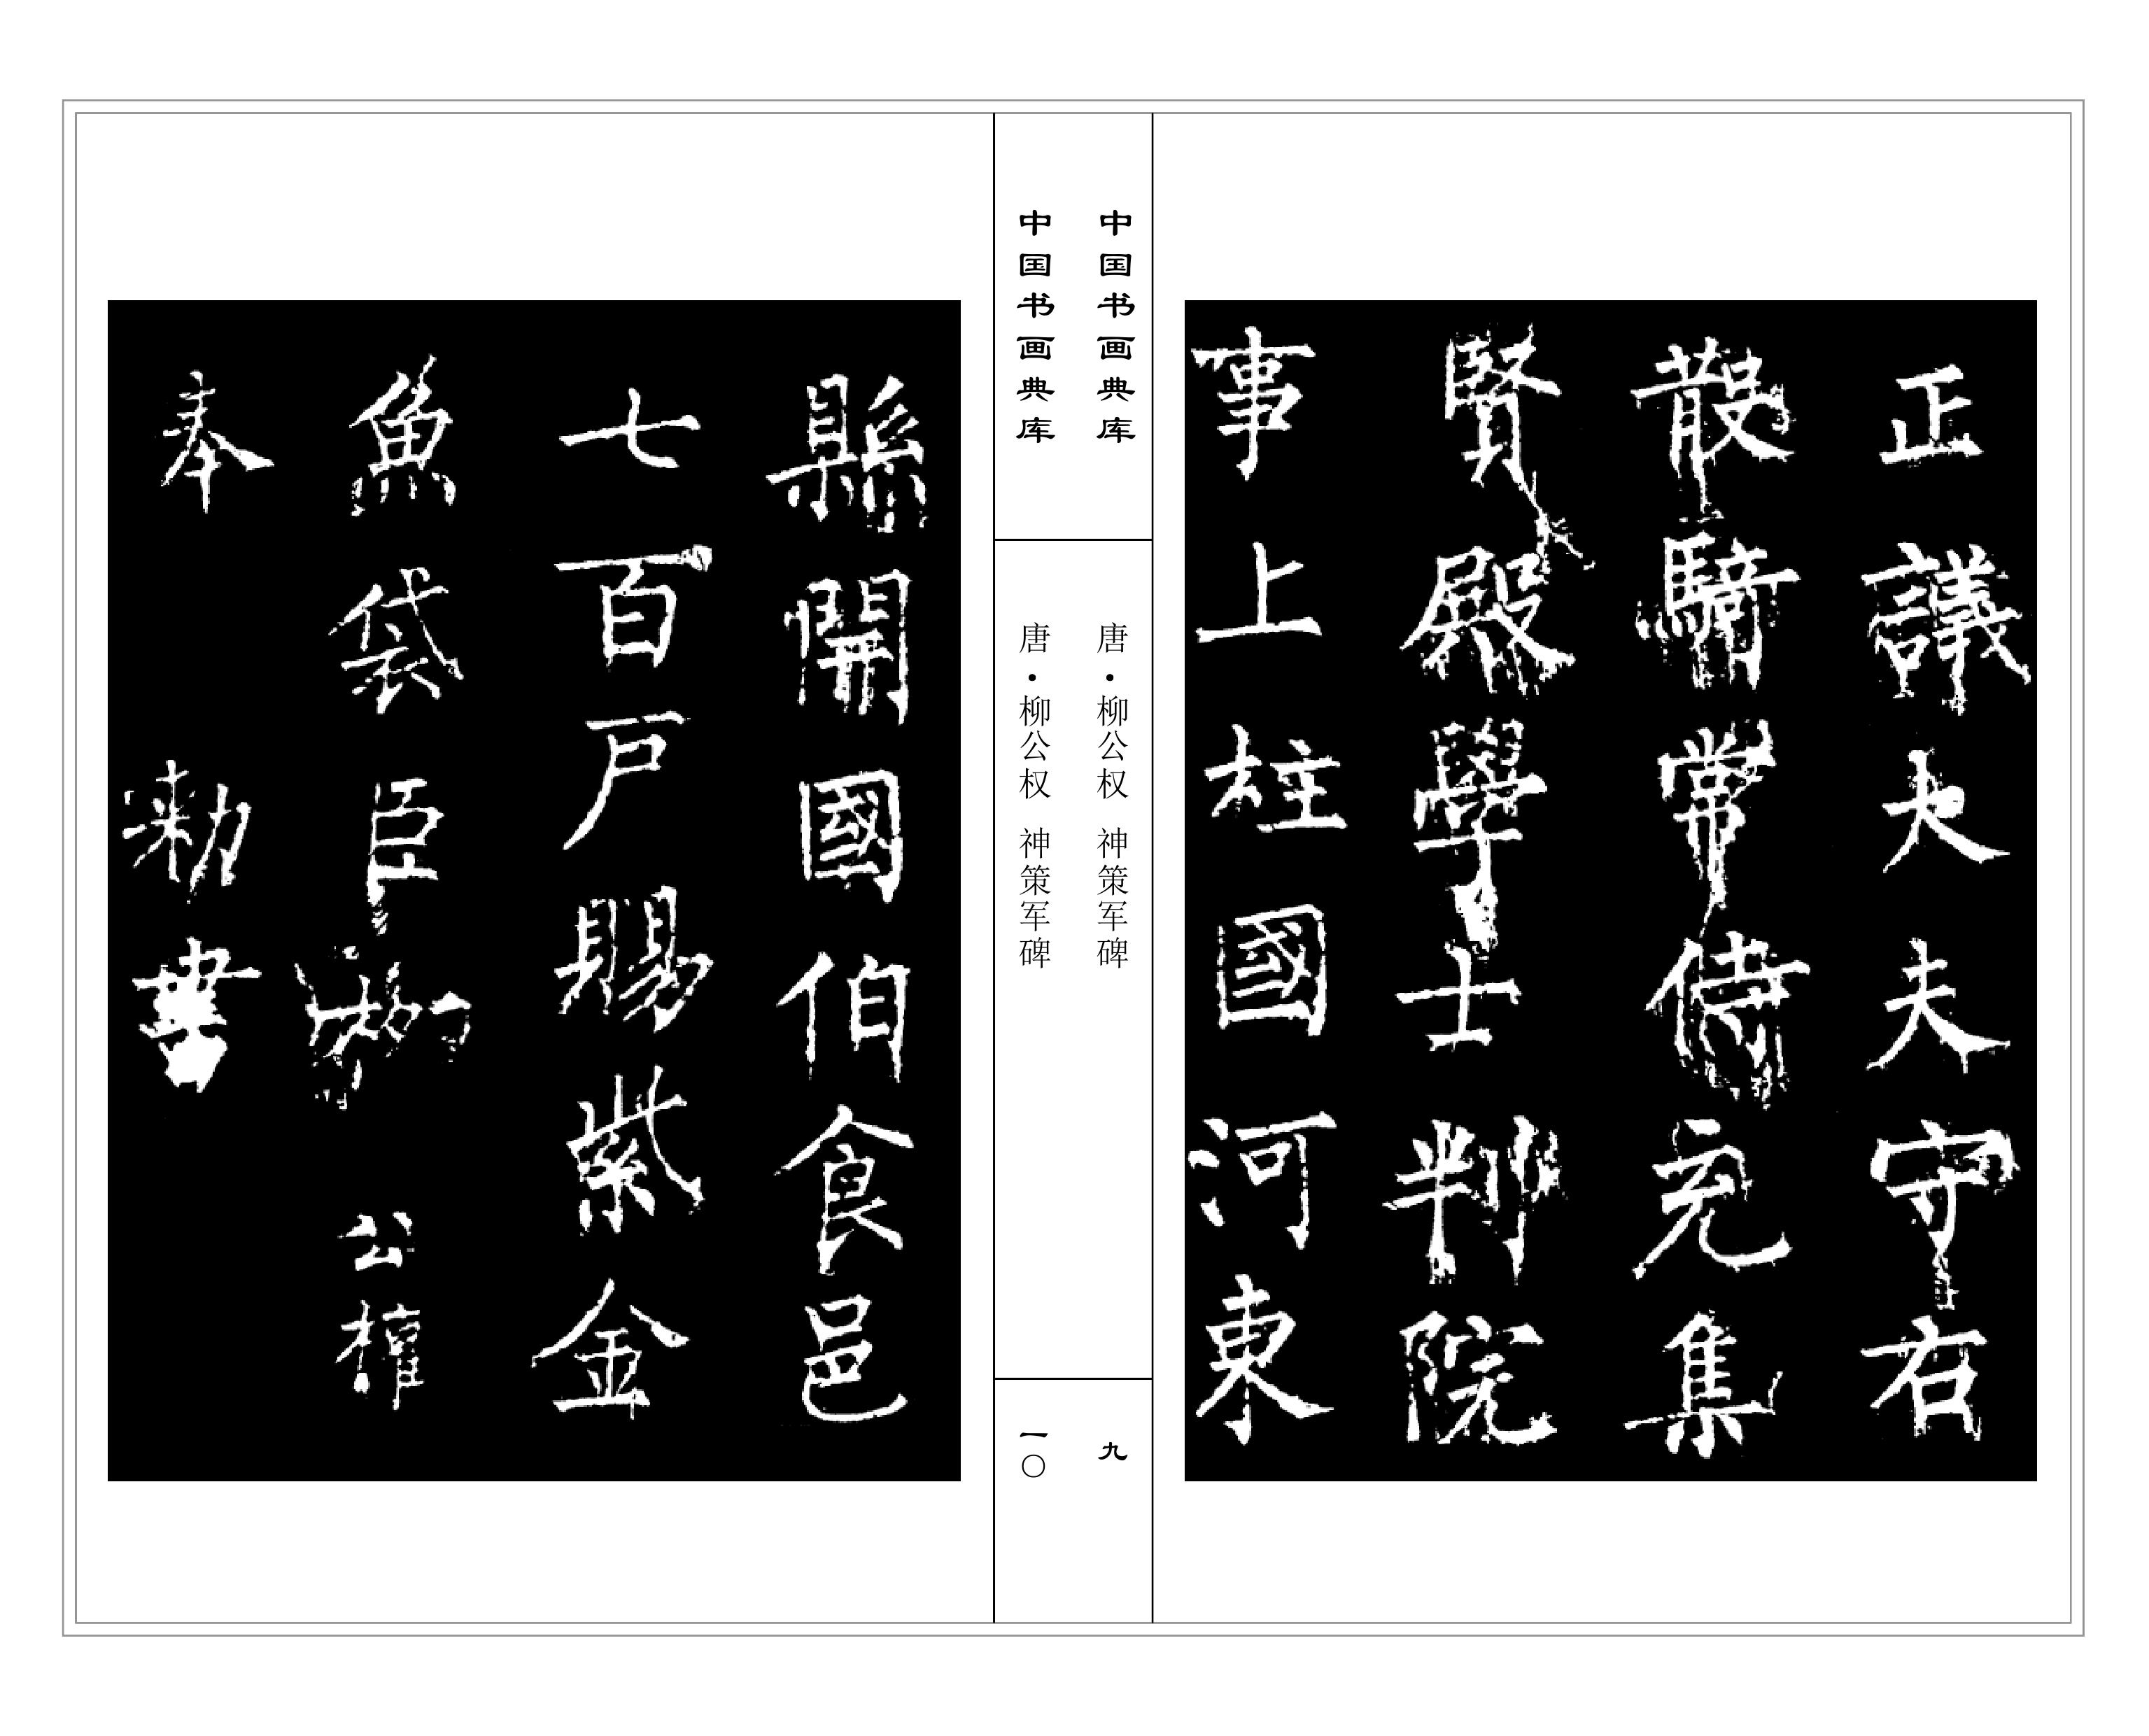 正議大夫守右
散騎常侍充集
賢殿學士判院
事上柱國河東
中国书画典库
唐·柳公权 神策军碑
九
中国书画典库
唐·柳公权 神策军碑
一〇
縣開國伯食邑
七百户賜紫金
魚袋臣柳公權
奉敕書